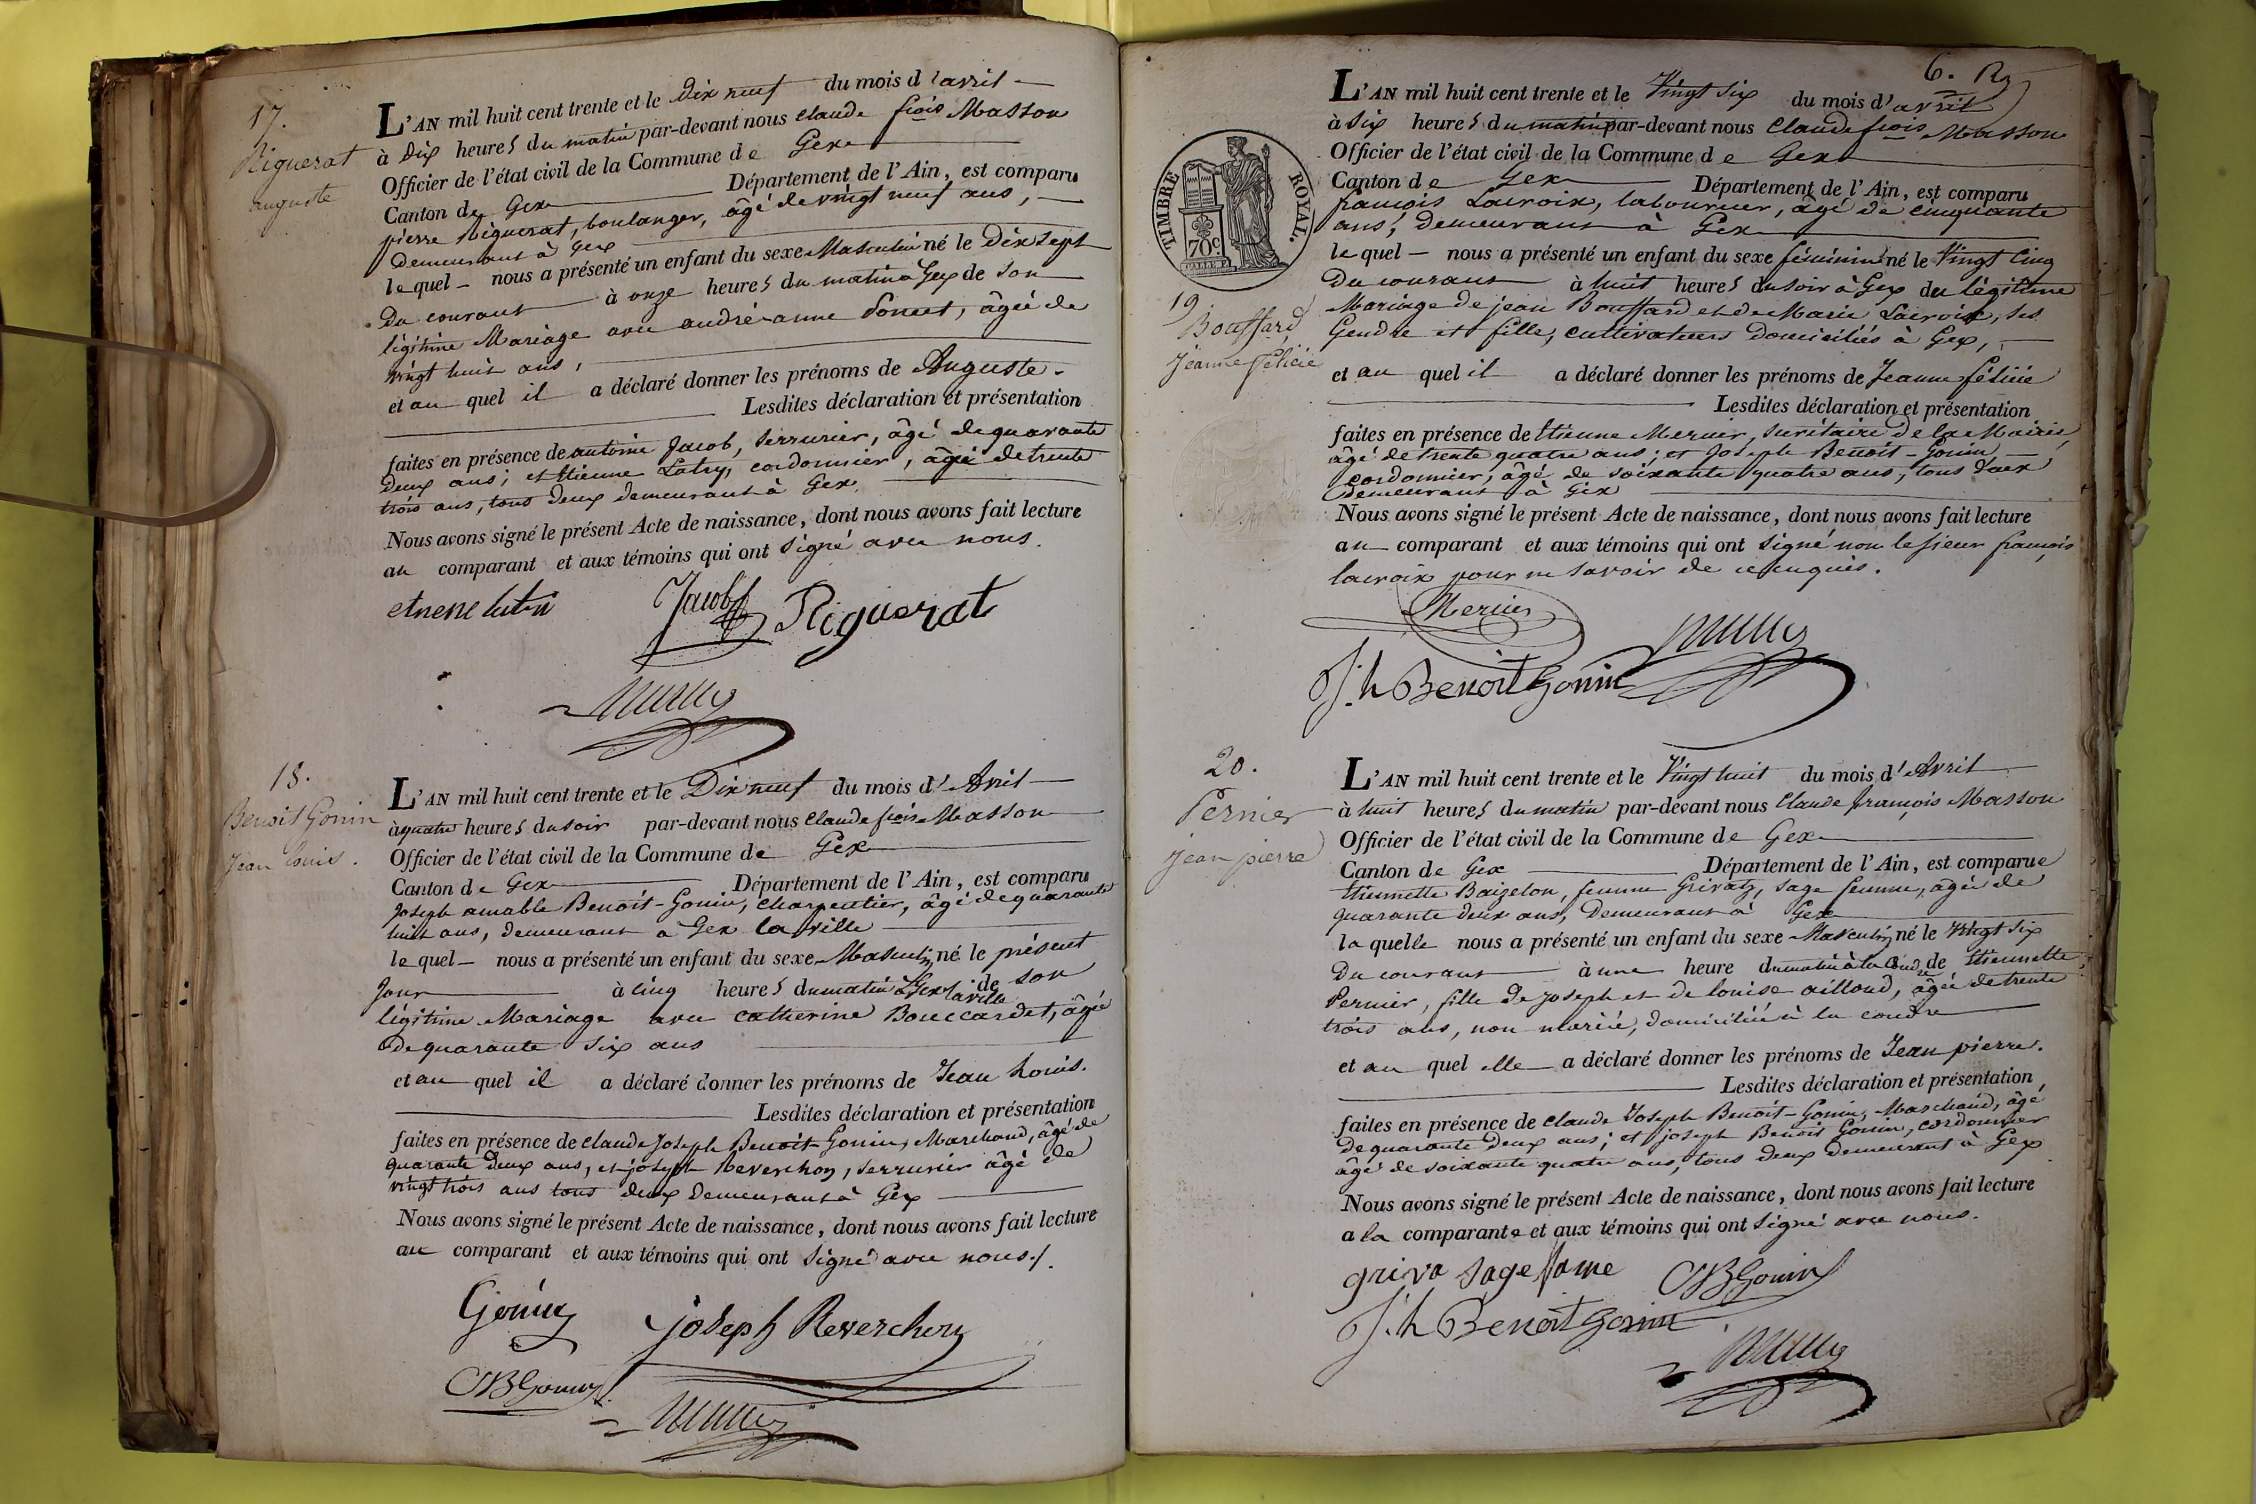 17.
Riguerat
auguste
L'AN mil huit cent trente et le Dix neuf du mois d'avril
à Dix heures du matin par-devant nous Claude fçois Masson
Officier de l'état civil de la Commune de Gex
Canton de Gex Département de l'Ain, est comparu
pierre Riguerat, boulanger, âgé de vingt neuf ans,
demeurant à Gex
lequel nous a présenté un enfant du sexe Masculin né le Dix sept
Du courant à onze heures du matin à Gex de son
légitime Mariage avec andré-anne Poncet, âgée de
vingt huit ans,
et au quel il a déclaré donner les prénoms de Auguste.
Lesdites déclaration et présentation
faites en présence de antoine Jacob, serrurier, âgé de quarante
deux ans; et Etienne Latry, cordonnier, âgé de trente
trois ans, tous deux demeurant à Gex.
Nous avons signé le présent Acte de naissance, dont nous avons fait lecture
au comparant et aux témoins qui ont signé avec nous.
Jacob Riguerat
18.
Benoit Gonin
Jean Louis.
L'AN mil huit cent trente et le Dix neuf du mois d'Avril
à quatre heures du soir par-devant nous Claude fçois Masson
Officier de l'état civil de la Commune de Gex
Canton de Gex Département de l'Ain, est comparu
Joseph amable Benoit-Gonin, charpentier, âgé de quarante
huit ans, demeurant à Gex la ville
lequel nous a présenté un enfant du sexe Masculin né le présent
Jour à cinq heures du matin à Gex la ville de son
légitime Mariage avec catherine Bouccardet, âgée
de quarante six ans
et au quel il a déclaré donner les prénoms de Jean Louis.
Lesdites déclaration et présentation
faites en présence de Claude Joseph Benoit-Gonin, Marchand, âgé de
quarante deux ans, et joseph Reverchon, serrurier âgé de
vingt trois ans tous deux demeurant à Gex
Nous avons signé le présent Acte de naissance, dont nous avons fait lecture
au comparant et aux témoins qui ont signé avec nous./.
Gonin joseph Reverchon
CJBGonin
6.
TIMBRE ROYAL.
70c
19
Bouffard
Jeanne félicie
L'AN mil huit cent trente et le Vingt six du mois d'avril
à six heures du matin par-devant nous Claude fçois Masson
Officier de l'état civil de la Commune de Gex
Canton de Gex Département de l'Ain, est comparu
françois Lacroix, laboureur, âgé de cinquante
ans, demeurant à Gex
lequel nous a présenté un enfant du sexe féminin né le Vingt cinq
Du courant à huit heures du soir à Gex du légitime
Mariage de jean Bouffard et de Marie Lacroix, ses
Gendre et fille, cultivateurs domiciliés à Gex,
et au quel il a déclaré donner les prénoms de Jeanne félicie
Lesdites déclaration et présentation
faites en présence de Etienne Mercier, secrétaire de la Mairie,
âgé de trente quatre ans; et Joseph Benoit-Gonin
cordonnier, âgé de soixante quatre ans, tous deux
demeurant à Gex
Nous avons signé le présent Acte de naissance, dont nous avons fait lecture
au comparant et aux témoins qui ont signé non le sieur françois
lacroix pour ne savoir de ce enquis.
Mercier
J.h Benoit Gonin
20.
Pernier
jean pierre
L'AN mil huit cent trente et le Vingt huit du mois d'Avril
à huit heures du matin par-devant nous Claude françois Masson
Officier de l'état civil de la Commune de Gex
Canton de Gex Département de l'Ain, est comparue
Etiennette Baizelon, femme Grivatz, sage femme, âgée de
quarante deux ans, demeurant à Gex
laquelle nous a présenté un enfant du sexe Masculin né le Vingt six
Du courant à une heure du matin à la Coudre de Etiennette
Pernier, fille de joseph et de louise ailloud, âgée de trente
trois ans, non mariée, domiciliée à la coudre
et au quel elle a déclaré donner les prénoms de Jean pierre.
Lesdites déclaration et présentation,
faites en présence de Claude Joseph Benoit-Gonin, Marchand, âgé
de quarante deux ans; et joseph Benoit Gonin, cordonnier
âgé de soixante quatre ans, tous deux demeurant à Gex
Nous avons signé le présent Acte de naissance, dont nous avons fait lecture
a la comparante et aux témoins qui ont signé avec nous.
griva sage fame CJBGonin
J.h Benoit Gonin